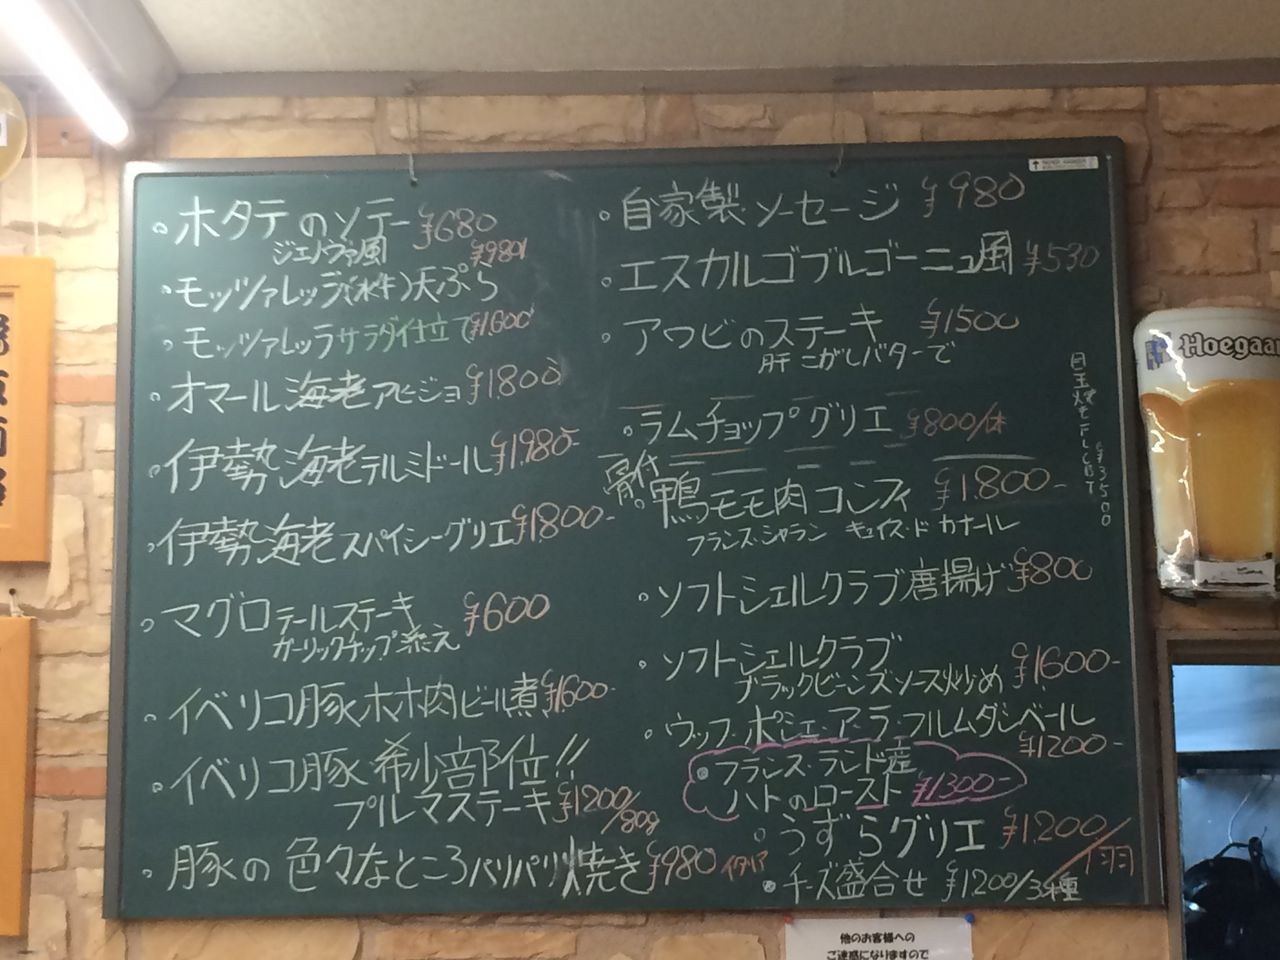 ホタテのソテー ¥680
ジェノヴァ風
¥980
モッツァレッラ(水牛)天ぷら
モッツァレッラサラダ仕立て ¥1600
オマール海老アヒージョ ¥1.800
伊勢海老テルミドール ¥1.980-
伊勢海老スパイシーグリエ ¥1800-
マグロテールステーキ ¥600
ガーリックチップ添え
イベリコ豚ホホ肉ビール煮 ¥1600-
イベリコ豚 希少部位!!
プルマステーキ ¥1200/80g
豚の色々なところパリパリ焼き ¥980 イタリア
自家製ソーセージ ¥980
エスカルゴブルゴーニュ風 ¥530
アワビのステーキ ¥1500
肝こがしバターで
ラムチョップグリエ ¥800/本
骨付鴨モモ肉コンフィ ¥1.800-
フランス・シャラン キュイス・ド カナール
ソフトシェルクラブ唐揚げ ¥800
ソフトシェルクラブ
ブラックビーンズソース炒め ¥1.600-
ウッフ・ポシェ・ア・ラ・フルムダンベール
¥1200-
フランス・ランド産
ハトのロースト ¥1300-
うずらグリエ ¥1.200/1羽
チーズ盛合せ ¥1200/3種
¥3500
Hoegaar
他のお客様への
ご迷惑になりますので